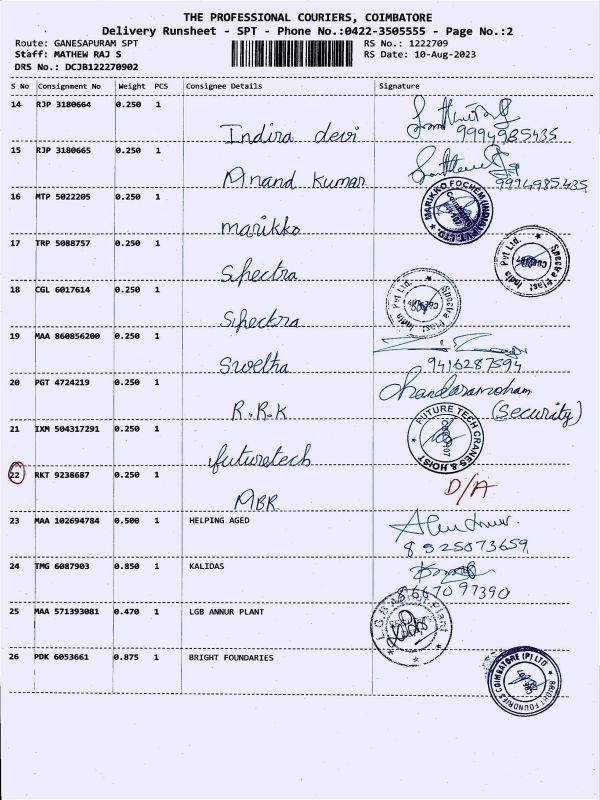 THE PROFESSIONAL COURIERS, COIMBATORE
Delivery Runsheet - SPT - Phone No.:0422-3505555 - Page No.:2
Route: GANESAPURAM SPT RS No.: 1222709
Staff: MATHEW RAJ S RS Date: 10-Aug-2023
DRS No.: DCJB122270902
S No Consignment No Weight PCS Consignee Details Signature
14 RJP 3180664 0.250 1 Indira devi
9994985435
15 RJP 3180665 0.250 1 Anand Kumar
9994985435
16 MTP 5022205 0.250 1 marikko
MARIKKO FOCHEM (INDIA) PVT. LTD.
17 TRP 5088757 0.250 1 Spectra
Spectra Plast India Pvt Ltd.
18 CGL 6017614 0.250 1 Spectra
Spectra Plast India Pvt Ltd.
19 MAA 860856200 0.250 1 Swetha
9416287594
20 PGT 4724219 0.250 1 R.R.K
Chandaramoham
(Security)
21 IXM 504317291 0.250 1 futuretech
FUTURE TECH CRANES & HOIST
22 RKT 9238687 0.250 1 MBR
D/A
23 MAA 102694784 0.500 1 HELPING AGED
8925073659
24 TMG 6087903 0.850 1 KALIDAS
8667097390
25 MAA 571393081 0.470 1 LGB ANNUR PLANT
26 PDK 6053661 0.875 1 BRIGHT FOUNDARIES
BRIGHT FOUNDRIES COIMBATORE (P) LTD